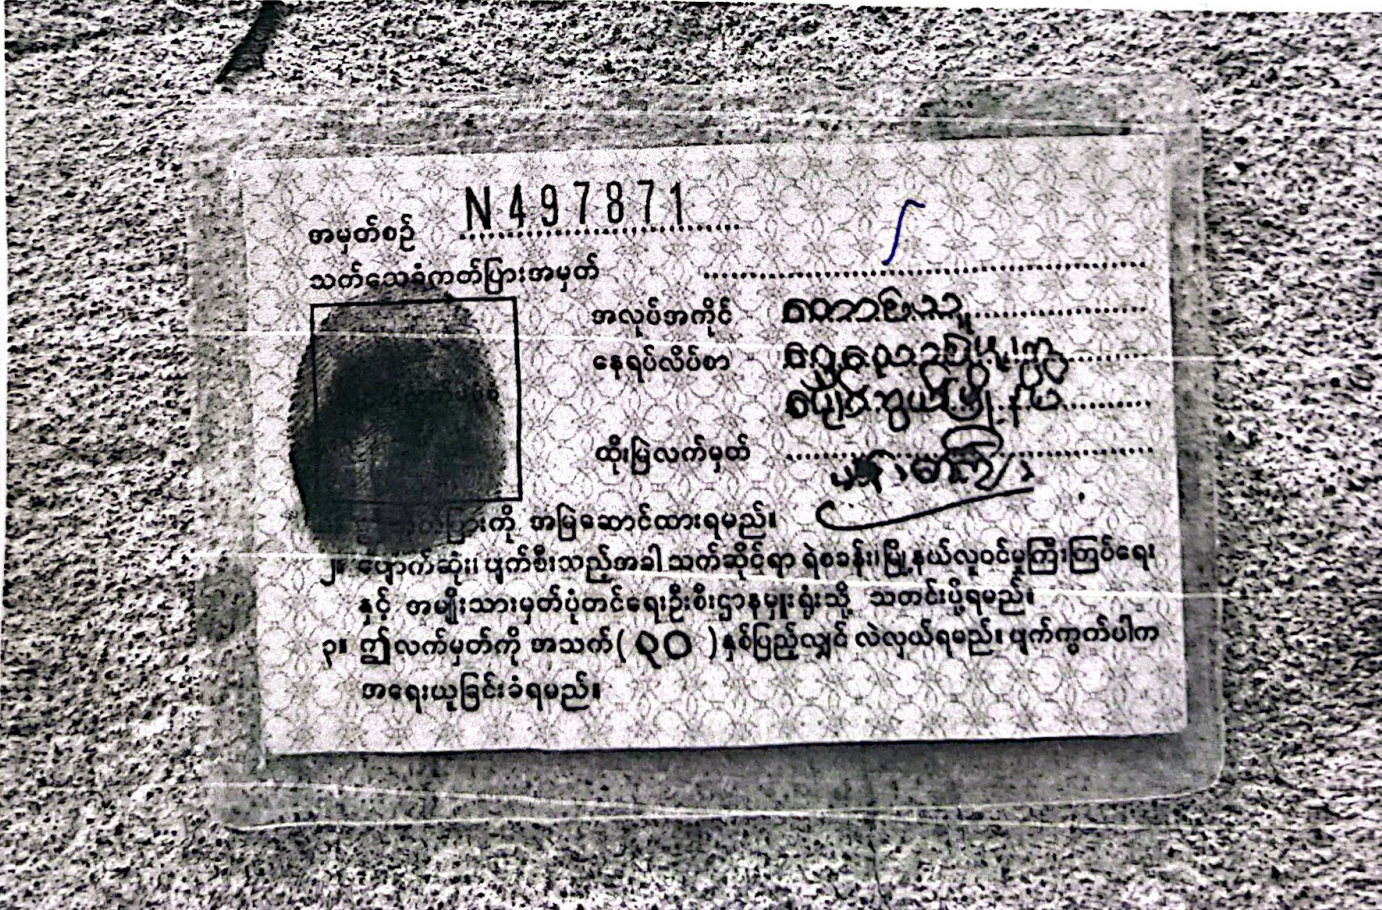 အမှတ်စဉ် N497871
သက်သေခံကတ်ပြားအမှတ်
အလုပ်အကိုင် တောင်သူ
နေရပ်လိပ်စာ
ထိုးမြဲလက်မှတ်
အမြဲဆောင်ထားရမည်။
၂။ ပျောက်ဆုံး၊ ပျက်စီးသည့်အခါ သက်ဆိုင်ရာ ရဲစခန်း၊ မြို့နယ်လူဝင်မှုကြီးကြပ်ရေး
နှင့် အမျိုးသားမှတ်ပုံတင်ရေးဦးစီးဌာနမှူးရုံးသို့ သတင်းပို့ရမည်။
၃။ ဤလက်မှတ်ကို အသက်( ၃၀ )နှစ်ပြည့်လျှင် လဲလှယ်ရမည်။ ပျက်ကွက်ပါက
အရေးယူခြင်းခံရမည်။